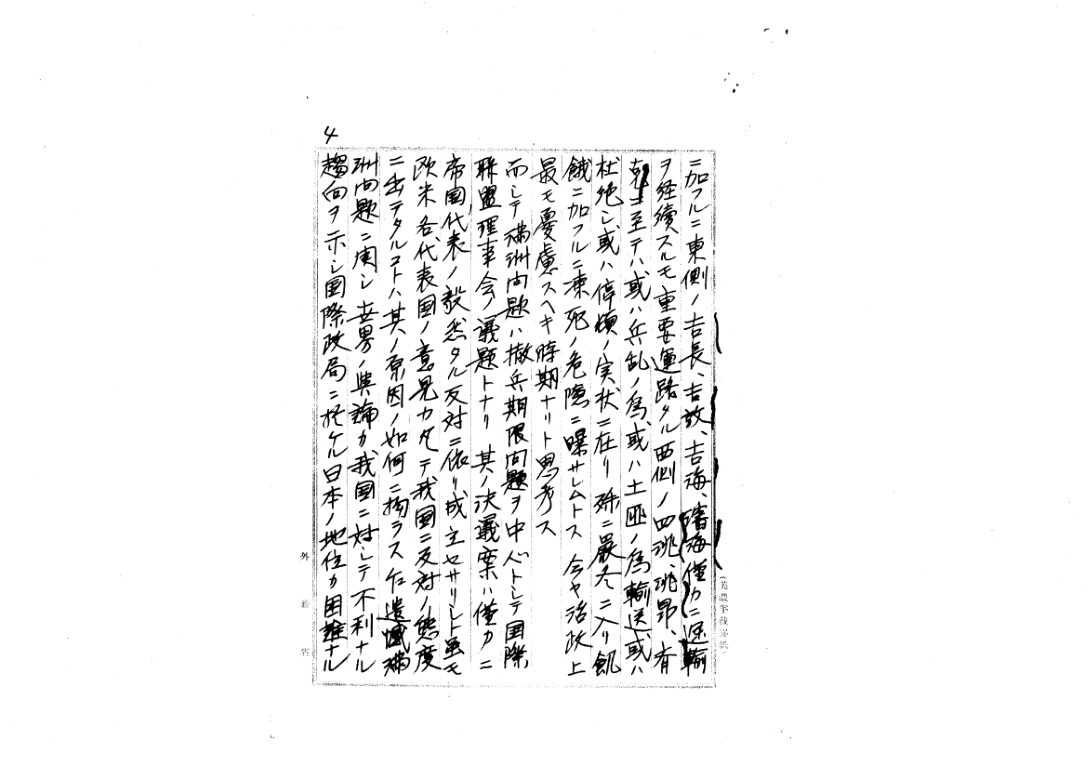 4
ニ加フルニ東側ノ吉長、吉敦、吉海、瀋海僅カニ運輸
ヲ経続スルモ重要運路タル西側ノ四洮、洮昂、斉
ニ至テハ或ハ兵乱ノ為、或ハ土匪ノ為輸送或ハ
杜絶シ或ハ停頓ノ実状ニ在リ殊ニ厳冬ニ入リ飢
餓ニ加フルニ凍死ノ危険ニ曝サレムトス今ヤ治政上
最モ憂慮スヘキ時期ナリト思考ス
而シテ満洲問題ハ撤兵期限問題ヲ中心トシテ国際
聯盟理事会ノ議題トナリ其ノ決議案ハ僅カニ
帝国代表ノ毅然タル反対ニ依リ成立セサリシト虽モ
欧米各代表国ノ意見カ凡テ我国ニ反対ノ態度
ニ出テタルコトハ其ノ原因ノ如何ニ拘ラス遺憾満
洲問題ニ関シ世界ノ輿論カ我国ニ対シテ不利ナル
趨向ヲ示シ国際政局ニ於ケル日本ノ地位カ困難ナル
外務省